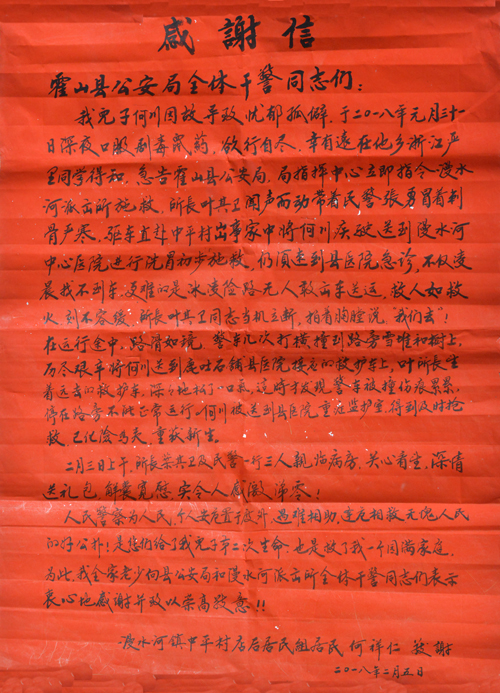 感謝信
霍山县公安局全体干警同志们：
我儿子何川因故导致忧郁孤僻，于二〇一八年元月三十一
日深夜口服剧毒鼠药，欲行自尽，幸有远在他乡浙江严
里同学得知，急告霍山县公安局，局指挥中心立即指令漫水
河派出所施救，所长叶其卫闻声而动带着民警张勇冒着刺
骨严寒，驱车直赴中平村出事家中将何川疾驶送到漫水河
中心医院进行洗胃初步施救，仍须送到县医院急诊，不仅凌
晨找不到车，更难的是冰凌险路无人敢出车送运，救人如救
火，刻不容缓，所长叶其卫同志当机立断，拍着胸腔说，"我们去"！
在运行途中，路滑如镜，警车几次打横，撞到路旁雪堆和树上，
历尽艰辛将何川送到鹿吐石铺县医院接应的救护车上，叶所长望
着远去的救护车，深深地松了一口气，这时才发现警车被撞伤痕累累，
停在路旁不能正常运行，何川被送到县医院重症监护室，得到及时抢
救，已化险为夷，重获新生。
二月三日上午，所长叶其卫及民警一行三人亲临病房，关心看望，深情
送礼包，解囊宽慰，实令人感激涕零！
人民警察为人民，个人安危置于度外，遇难相助，逢危相救无愧人民
的好公仆！是您们给了我儿子第二次生命，也是救了我一个圆满家庭，
为此，我全家老少向县公安局和漫水河派出所全体干警同志们表示
衷心地感谢并致以崇高敬意！！
漫水河镇中平村店后居民组居民 何祥仁 致谢
二〇一八年二月五日